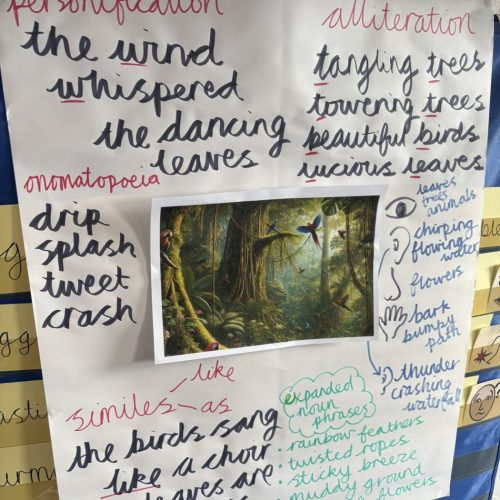 personification
the wind
whispered
the dancing
leaves
alliteration
tangling trees
towering trees
beautiful birds
lucious leaves
onomatopoeia
drip
splash
tweet
crash
leaves
trees
animals
chirping
flowing
water
flowers
bark
bumpy
path
thunder
crashing
waterfall
similes
like
as
the birds sang
like a choir
leaves are
expanded
noun
phrases
rainbow feathers
twisted ropes
sticky breeze
muddy ground
flowers